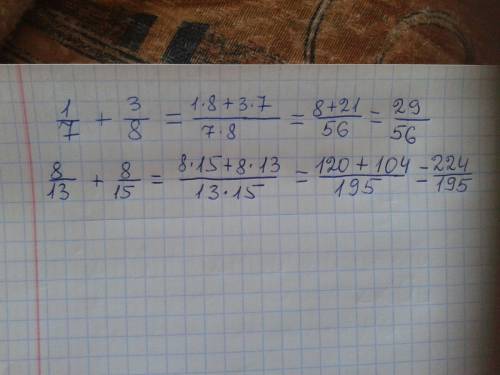 1/7 + 3/8 = (1·8+3·7)/(7·8) = (8+21)/56 = 29/56
8/13 + 8/15 = (8·15+8·13)/(13·15) = (120+104)/195 = 224/195